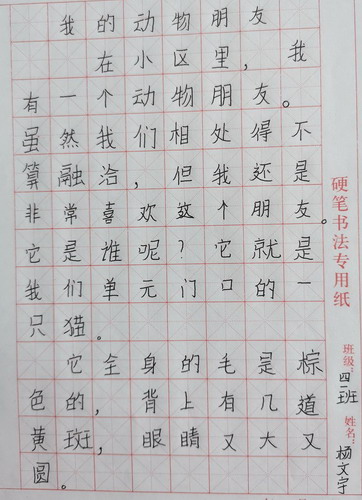 我的动物朋友
在小区里，我
有一个动物朋友。
虽然我们相处得不
算融洽，但我还是
非常喜欢这个朋友。
它是谁呢？它就是
我们单元门口的一
只猫。
它全身的毛是棕
色的，背上有几道
黄斑，眼睛又大又
圆。
硬笔书法专用纸
班级：四二班
姓名：杨文宇